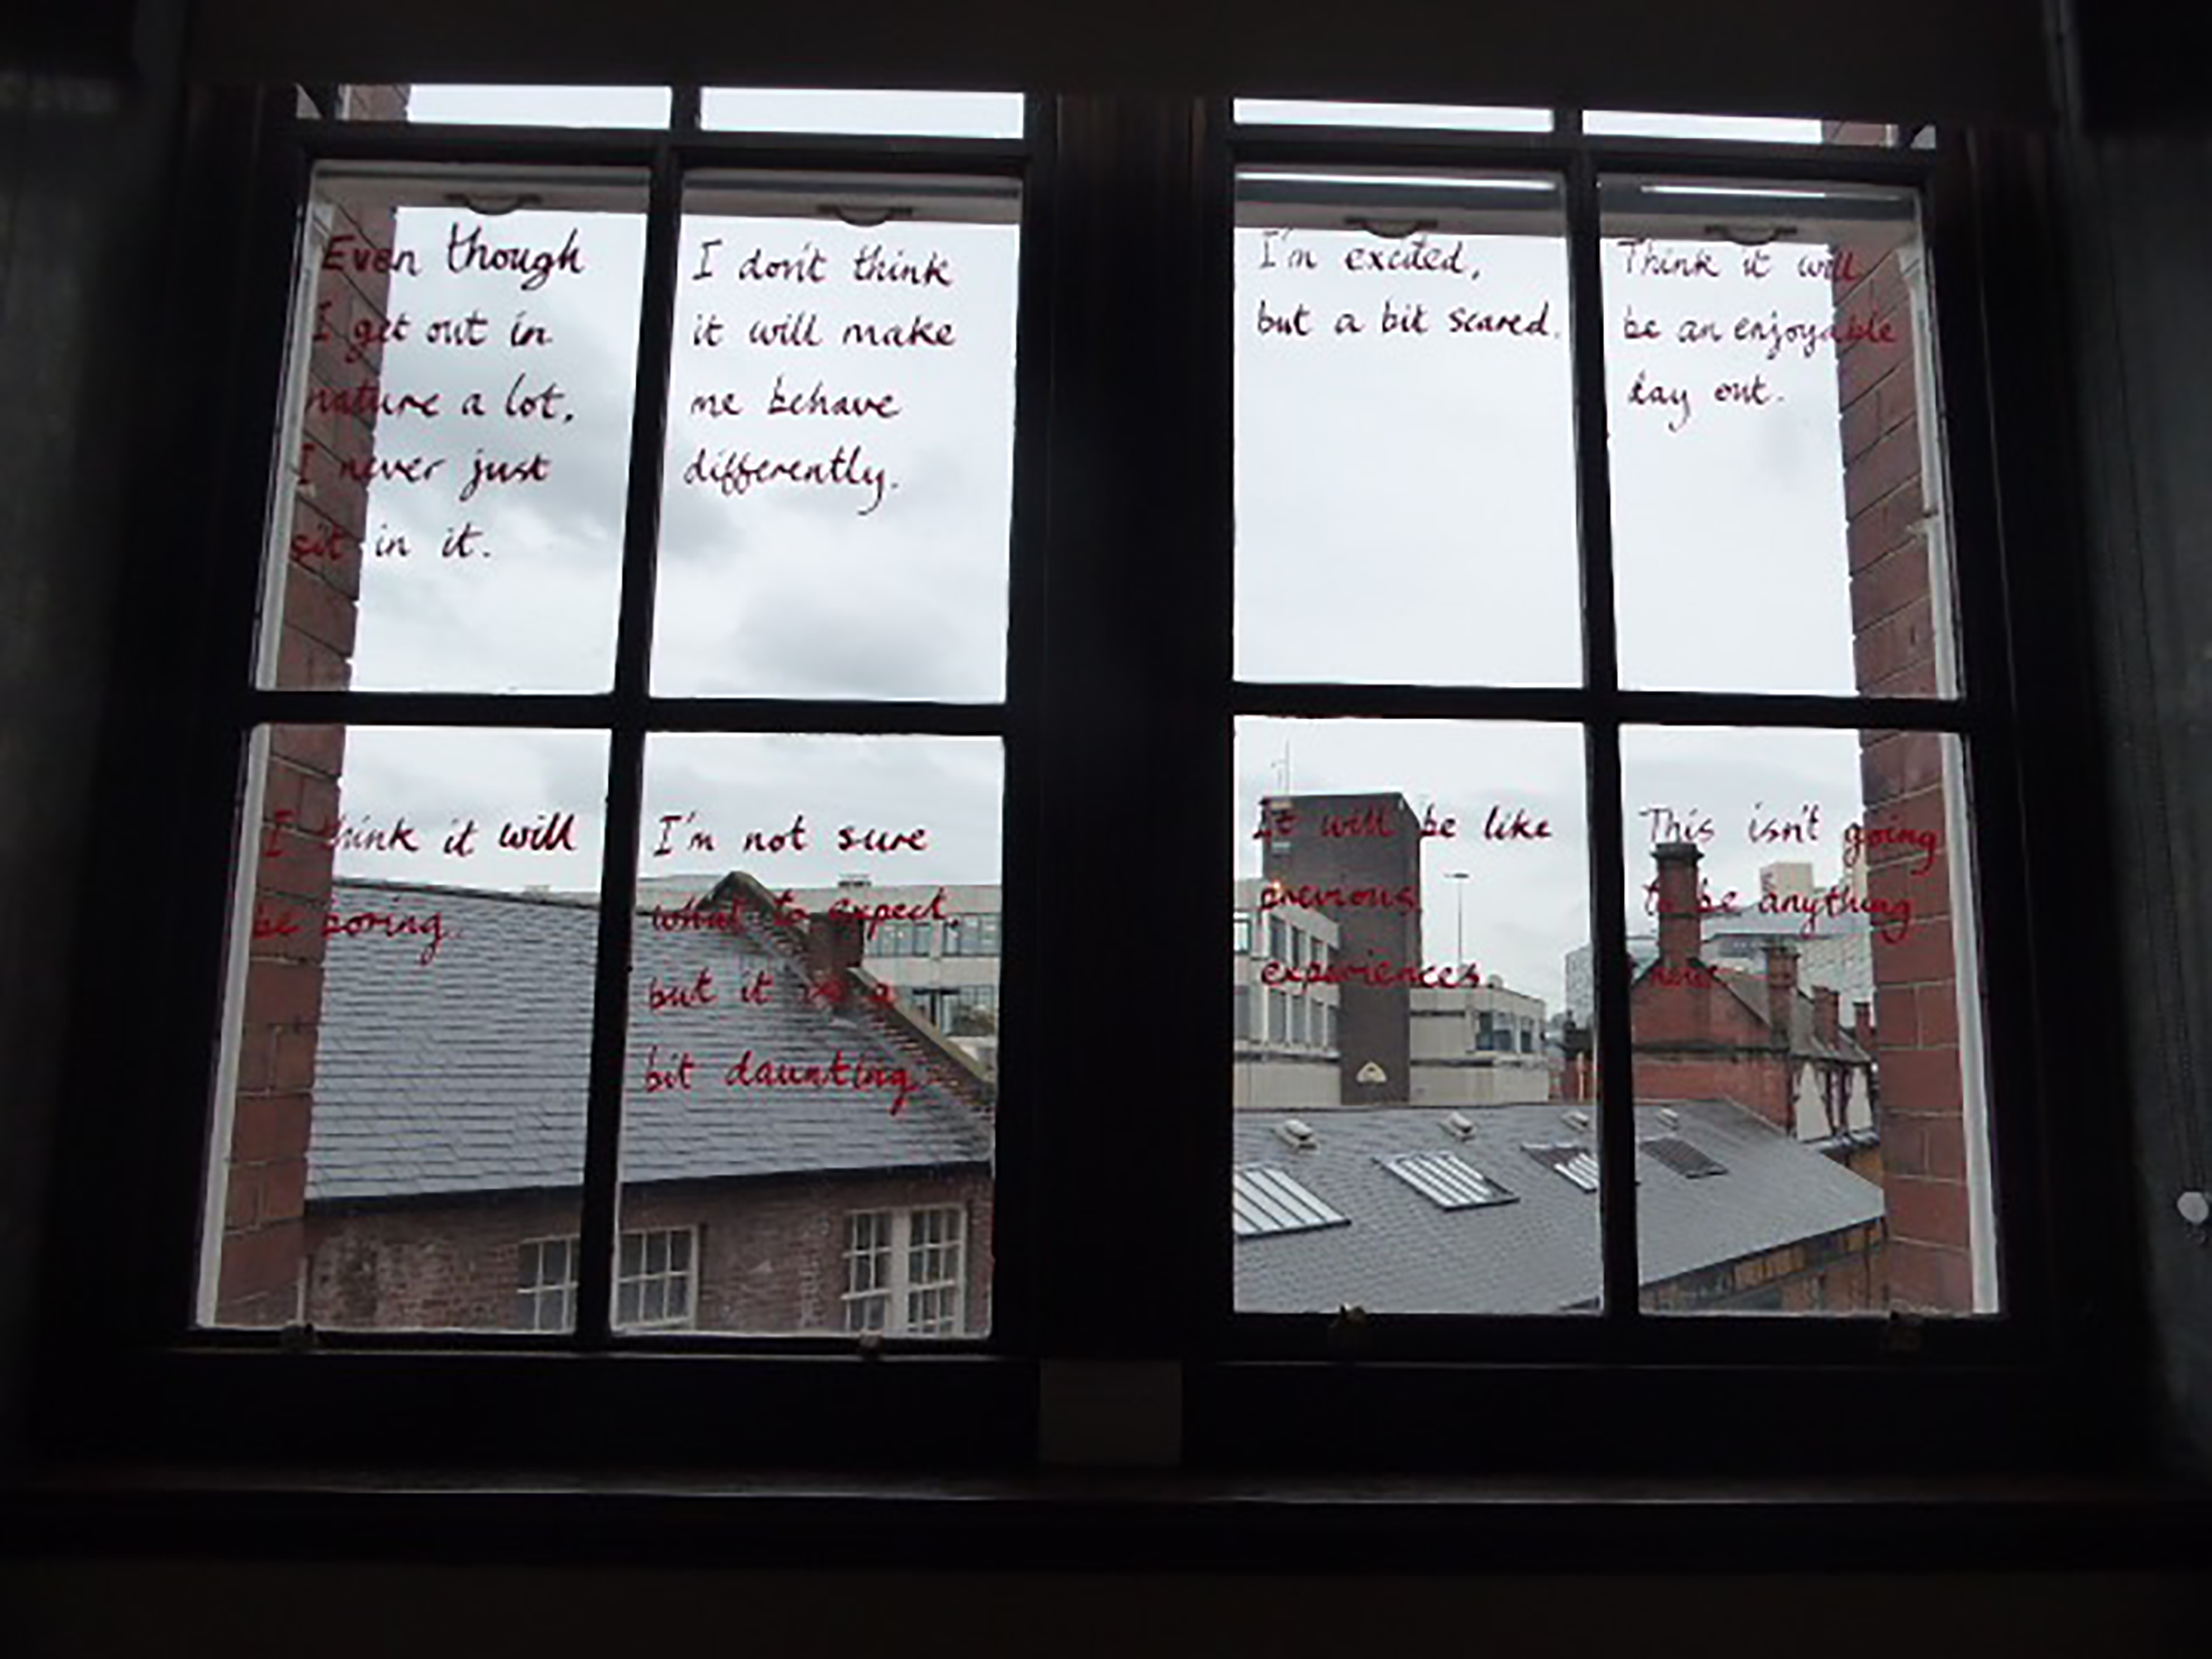 Even though
I get out in
nature a lot,
I never just
sit in it.
I don't think
it will make
me behave
differently.
I'm excited,
but a bit scared.
Think it will
be an enjoyable
day out.
I think it will
be boring.
I'm not sure
what to expect,
but it is a
bit daunting
It will be like
previous
experiences
This isn't going
to be anything
new